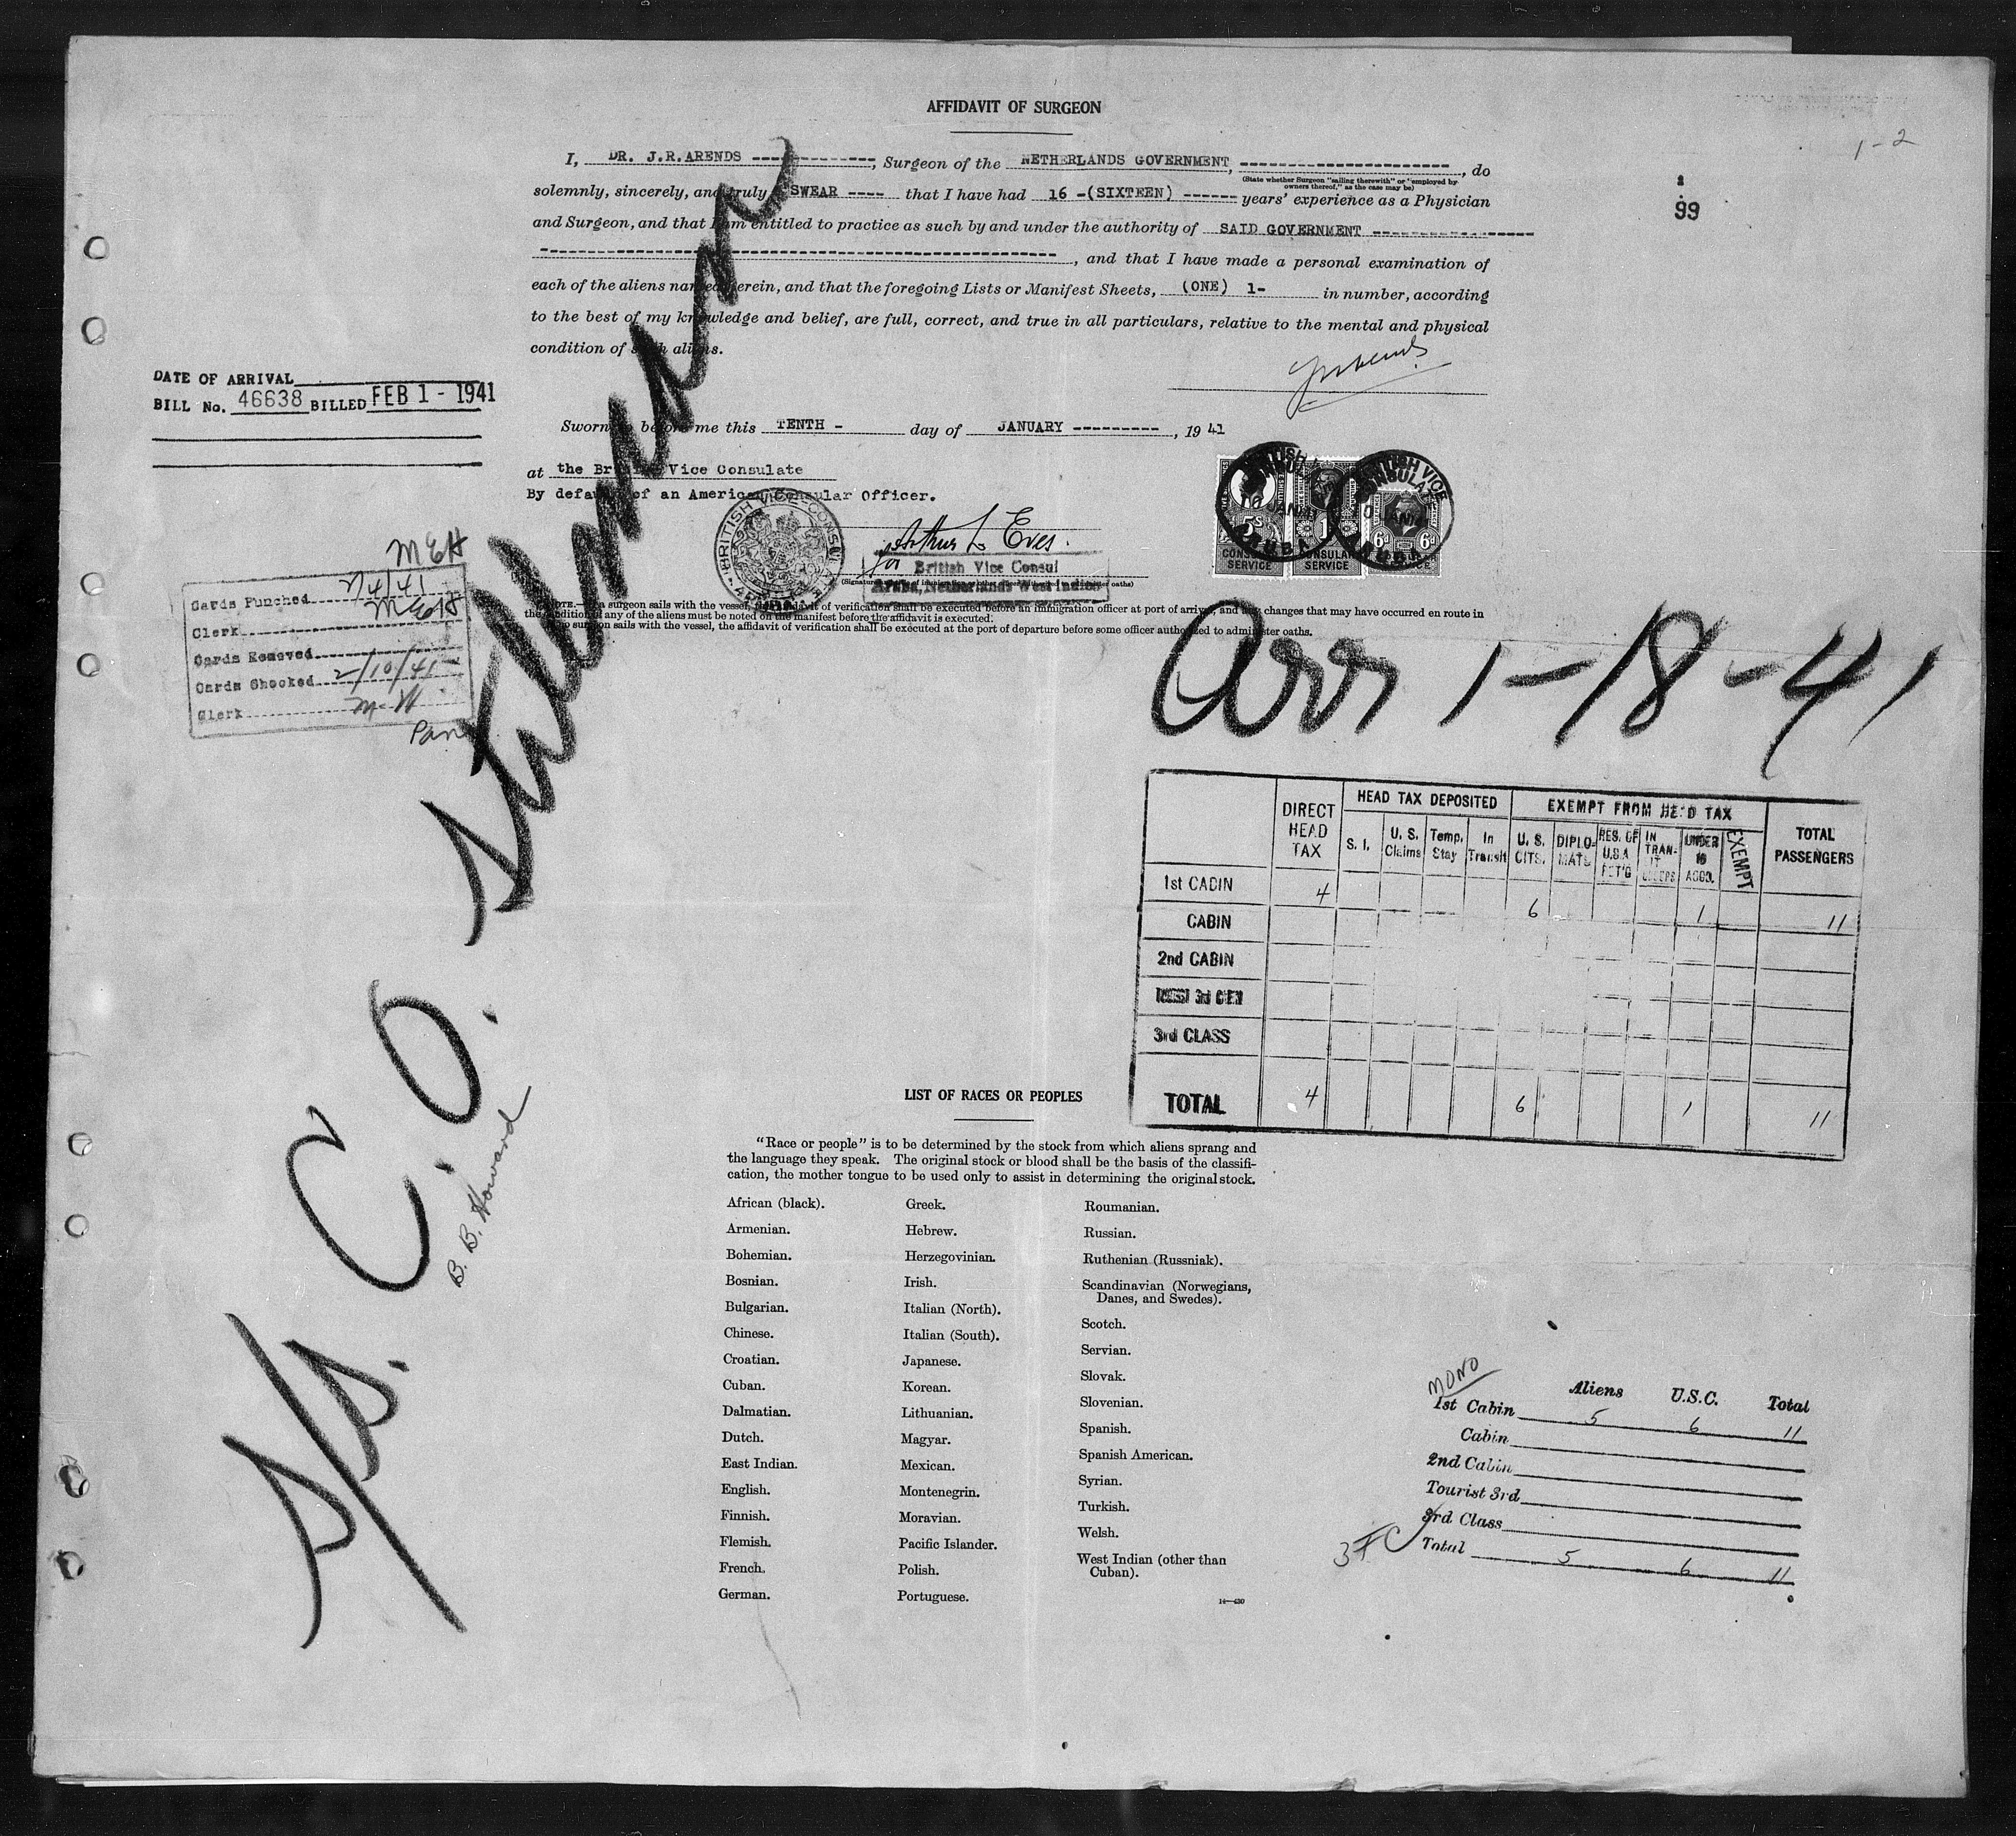 AFFIDAVIT OF SURGEON
1-2
I, DR. J.R.ARENDS ---------------, Surgeon of the NETHERLANDS GOVERNMENT, ----------------------, do
(State whether Surgeon "sailing therewith" or "employed by owners thereof," as the case may be)
solemnly, sincerely, and truly SWEAR ---- that I have had 16 -(SIXTEEN) ------ years' experience as a Physician
1
99
and Surgeon, and that I am entitled to practice as such by and under the authority of SAID GOVERNMENT ----------------
------------------------------------------------------, and that I have made a personal examination of
each of the aliens named herein, and that the foregoing Lists or Manifest Sheets, (ONE) 1- in number, according
to the best of my knowledge and belief, are full, correct, and true in all particulars, relative to the mental and physical
condition of such aliens.
DATE OF ARRIVAL
BILL No. 46638 BILLED FEB 1 - 1941
Sworn to before me this TENTH - day of JANUARY ---------, 19 41
at the British Vice Consulate
By default of an American Consular Officer.
BRITISH VICE-CONSULATE
Arthur L Eves.
for British Vice Consul
Aruba, Netherlands West Indies
BRITISH VICE CONSULATE
10 JAN 41
ARUBA
5s 1 6d 6d
CONSULAR SERVICE
CONSULAR SERVICE
NOTE.—If a surgeon sails with the vessel, the affidavit of verification shall be executed before an immigration officer at port of arrival, and any changes that may have occurred en route in
the condition of any of the aliens must be noted on the manifest before the affidavit is executed.
If no surgeon sails with the vessel, the affidavit of verification shall be executed at the port of departure before some officer authorized to administer oaths.
MEH
Cards Punched 2/4/41
Clerk MEH
Cards Removed
Cards Checked 2/10/41
Clerk M-W
S/S. C. O. Stillman
B. B. Howard
Arr 1-18-41
DIRECT HEAD TAX
HEAD TAX DEPOSITED
EXEMPT FROM HEAD TAX
TOTAL PASSENGERS
S. I.
U. S. Claims
Temp. Stay
In Transit
U. S. CITS.
DIPLO-MATS
RES. OF U.S.A RET'G
IN TRAN-IT
UNDER 16 ACCO.
EXEMPT
1st CABIN 4 6 1 11
CABIN
2nd CABIN
3rd CLASS
TOTAL 4 6 1 11
LIST OF RACES OR PEOPLES
"Race or people" is to be determined by the stock from which aliens sprang and
the language they speak. The original stock or blood shall be the basis of the classifi-
cation, the mother tongue to be used only to assist in determining the original stock.
African (black).
Armenian.
Bohemian.
Bosnian.
Bulgarian.
Chinese.
Croatian.
Cuban.
Dalmatian.
Dutch.
East Indian.
English.
Finnish.
Flemish.
French.
German.
Greek.
Hebrew.
Herzegovinian.
Irish.
Italian (North).
Italian (South).
Japanese.
Korean.
Lithuanian.
Magyar.
Mexican.
Montenegrin.
Moravian.
Pacific Islander.
Polish.
Portuguese.
Roumanian.
Russian.
Ruthenian (Russniak).
Scandinavian (Norwegians,
Danes, and Swedes).
Scotch.
Servian.
Slovak.
Slovenian.
Spanish.
Spanish American.
Syrian.
Turkish.
Welsh.
West Indian (other than
Cuban).
14—430
MONO
Aliens U.S.C. Total
1st Cabin 5 6 11
Cabin
2nd Cabin
Tourist 3rd
3rd Class
Total 5 6 11